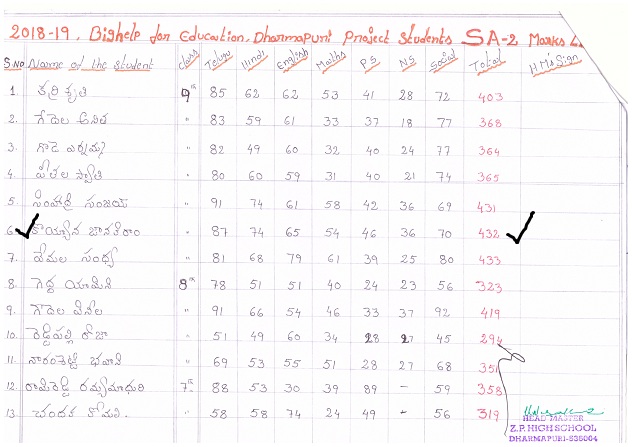 2018-19, Bighelp for Education, Dharmapuri Project Students SA-2 Marks
S.No Name of the Student Class Telugu Hindi English Maths P.S N.S Social Total H.M's Sign
1. 9th 85 62 62 53 41 28 72 403
2. గేదెల అనిత " 83 59 61 33 37 18 77 368
3. " 82 49 60 32 40 24 77 364
4. పీతల స్వాతి " 80 60 59 31 40 21 74 365
5. సింహాద్రి సంజయ్ " 91 74 61 58 42 36 69 431
6. కొయ్యాన జానకిరాం " 87 74 65 54 46 36 70 432
7. వేమల సంధ్య " 81 68 79 61 39 25 80 433
8. గెద్ద యామిని 8th 78 51 51 40 24 23 56 323
9. గౌడెల వెన్నెల " 91 66 54 46 33 37 92 419
10. రెడ్డిపల్లి రోజా " 51 49 60 34 28 27 45 294
11. భవాని " 69 53 55 51 28 27 68 351
12. రామిరెడ్డి రమ్యమాధురి 7th 88 53 30 39 89 - 59 358
13. చందక " 58 58 74 24 49 - 56 319
HEAD MASTER
Z.P. HIGH SCHOOL
DHARMAPURI-535004